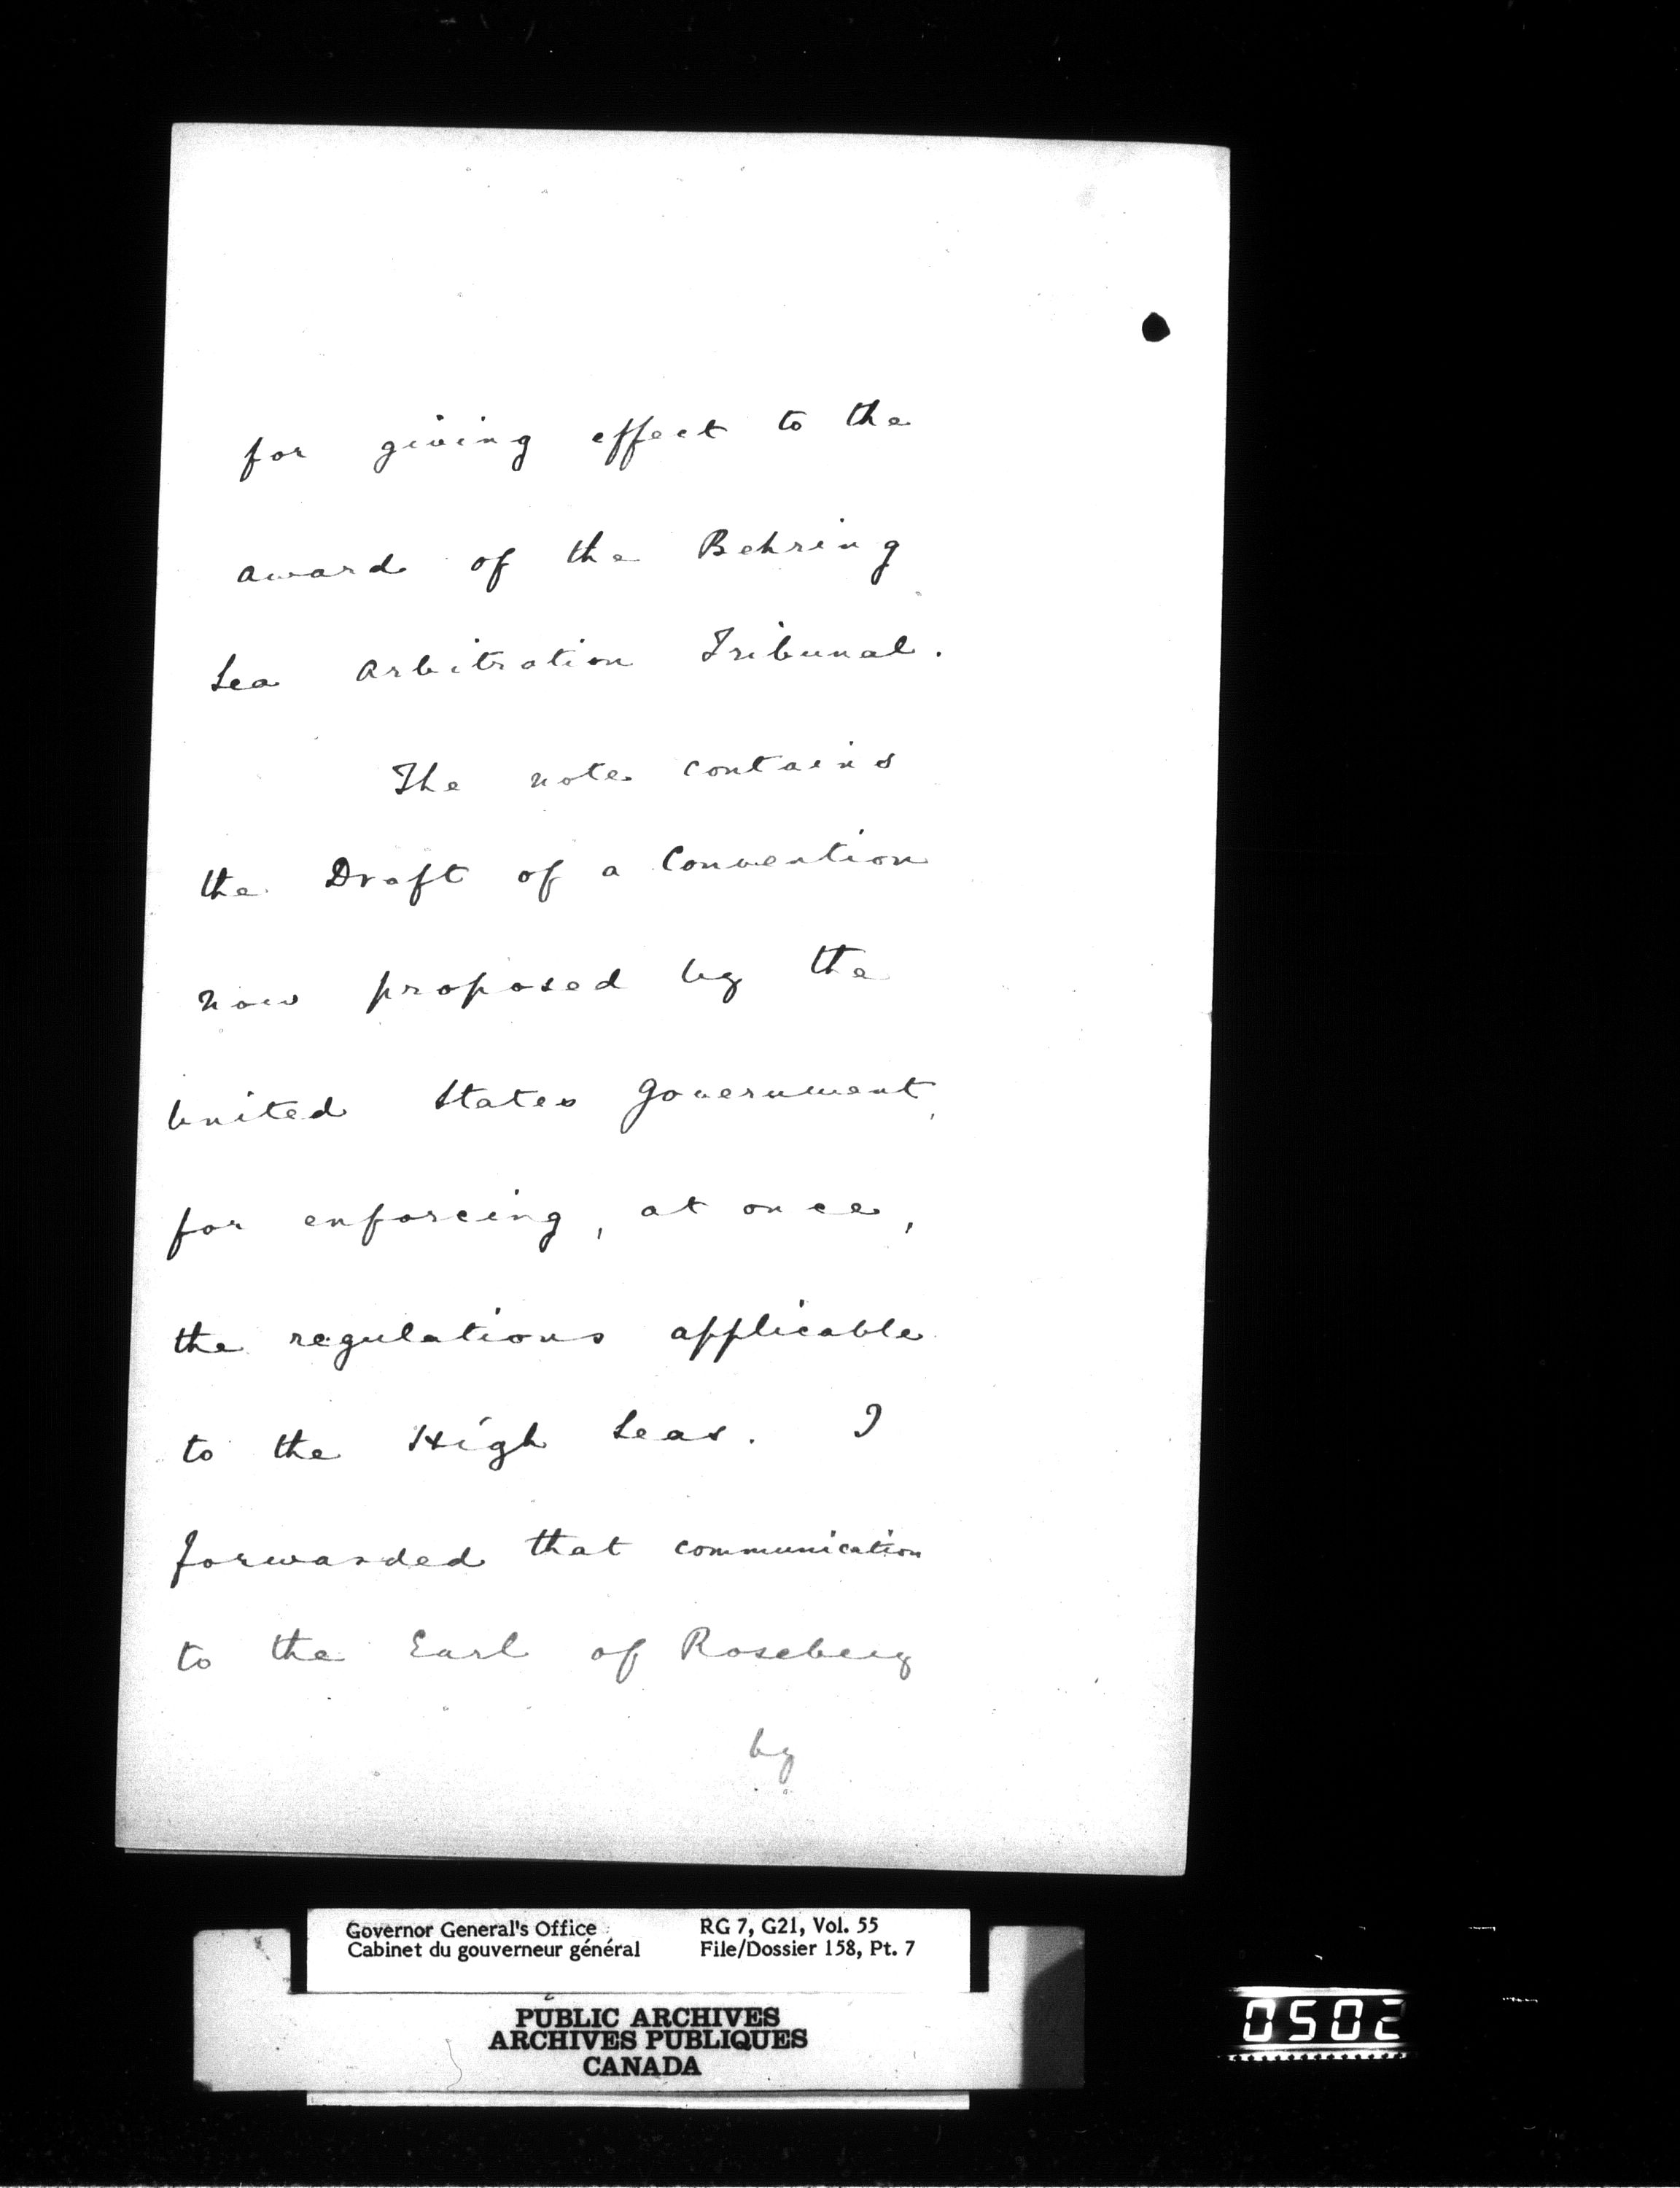 for giving effect to the
award of the Behring
Sea Arbitration Tribunal.
The note contains
the Draft of a Convention
now proposed by the
United States Government,
for enforcing, at once,
the regulations applicable
to the High Seas. I
forwarded that communication
to the Earl of Rosebery
by
Governor General's Office
Cabinet du gouverneur général
RG 7, G21, Vol. 55
File/Dossier 158, Pt. 7
PUBLIC ARCHIVES
ARCHIVES PUBLIQUES
CANADA
0502